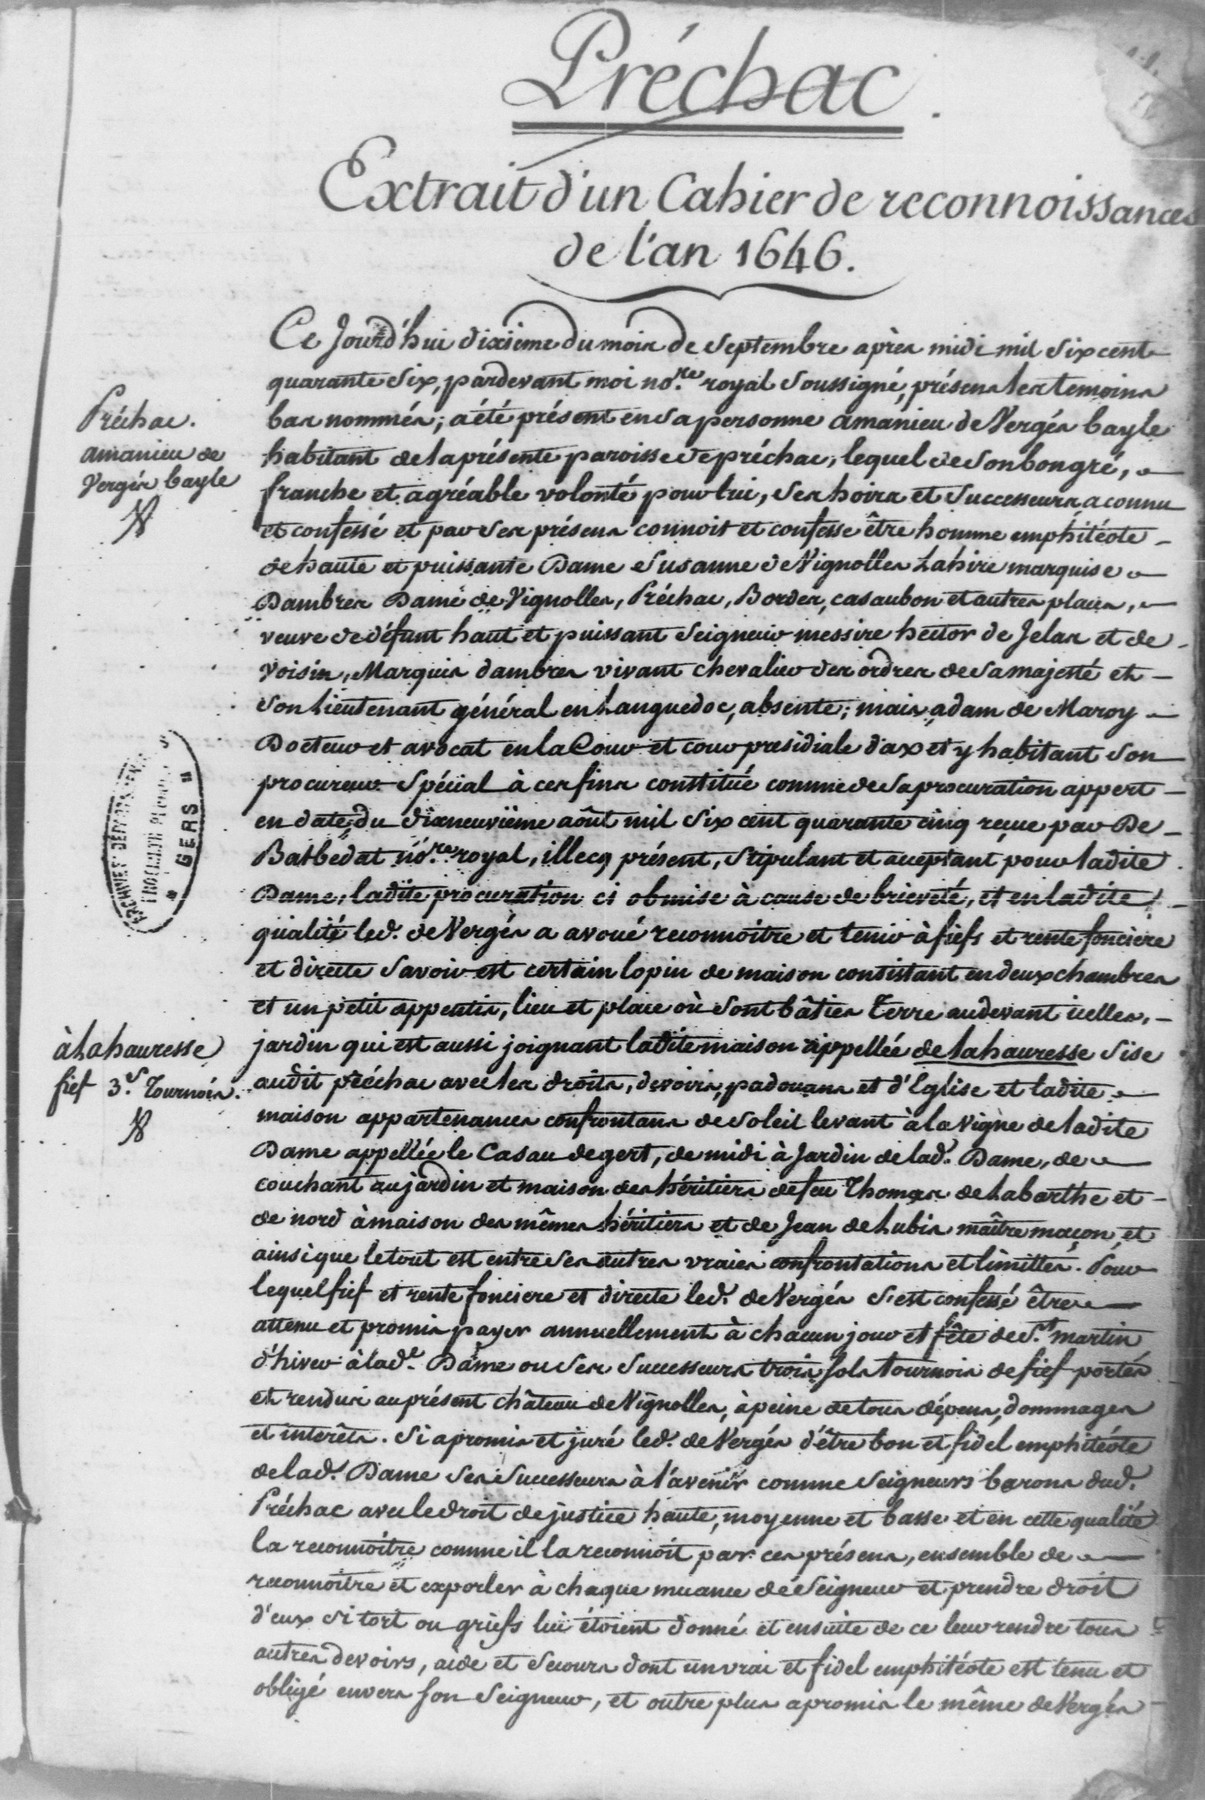 Préchac.
Extrait d'un Cahier de reconnoissances
de l'an 1646.
Ce Jourd'hui dixieme du mois de Septembre après midi mil six cent
quarante six, pardevant moi no.re royal soussigné, présens les temoins
bas nommés; a été présent en sa personne amanieu de Vergés bayle
habitant de la présente paroisse de préchac, lequel de son bon gré,
franche et agréable volonté pour lui, ses hoirs et successeurs a connu
et confessé et par ses présens connoit et confesse être homme emphitéote
de haute et puissante Dame Susanne de Vignolles Lahire marquise
Dambres Dame de Vignolles, Préchac, Bordes, casaubon et autres places,
veuve de défunt haut et puissant Seigneur messire hector de Jelas et de
Voisin, Marquis dambres vivant chevalier des ordres de sa majesté et
son Lieutenant général en Languedoc, absente; mais adam de Maroy
Docteur et avocat en la Cour et cour presidiale d'ax et y habitant son
procureur spécial à ces fins constitué comme de sa procuration appert
en date du dixneuvieme août mil six cent quarante cinq reçue par De
Basbedat no.re royal, illecq présent, stipulant et acceptant pour ladite
Dame, ladite procuration ci obmise à cause de brieveté, et en ladite
qualité led. de Vergés a avoué reconnoitre et tenir à fiefs et rente fonciere
et directe savoir est certain lopin de maison consistant en deux chambres
et un petit appentis, lieu et place où sont bâties terre audevant icelles,
jardin qui est aussi joignant ladite maison appellée de lahauresse sise
audit préchac avec les droits, devoirs, padouans et d'Eglise et ladite
maison appartenances confrontans de soleil levant à la vigne de ladite
Dame appellée le Casau de gert, de midi à Jardin de lad. Dame, de
couchant au jardin et maison des héritiers de feu Thomas de Labarthe et
de nord à maison des mêmes héritiers et de Jean de Lubis maître maçon, et
ainsi que le tout est entre ses autres vraies confrontations et limittes. Pour
lequel fief et rente fonciere et directe led. de Vergés s'est confessé être
attenu et promis payer annuellement à chacun jour et fête de St martin
d'hiver à lad.e Dame ou ses successeurs trois sols tournois de fief portés
et rendus au présent château de Vignolles, à peine de tous dépens, dommages
et interêts. Si a promis et juré led. de Vergés d'être bon et fidel emphitéote
de lad. Dame ses successeurs à l'avenir comme Seigneurs barons dud.
Préchac avec le droit de justice haute, moyenne et basse et en cette qualité
la reconnoitre comme il la reconnoit par ces présens, ensemble de
reconnoitre et exporler à chaque muance de Seigneur et prendre droit
d'eux si tort ou griefs lui étoient donné et ensuite de ce leur rendre tous
autres devoirs, aide et secours dont un vrai et fidel emphitéote est tenu et
obligé envers son Seigneur, et outre plus a promis le même de Vergés
Préchac.
amanieu de
Vergés bayle
à Lahauresse
fief 3.s Tournois.
GERS